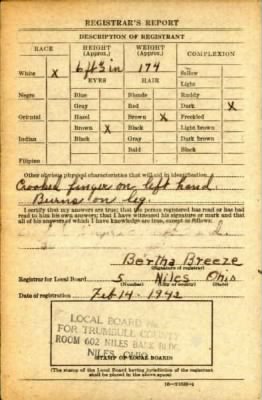 REGISTRAR'S REPORT
DESCRIPTION OF REGISTRANT
RACE HEIGHT (Approx.) WEIGHT (Approx.) COMPLEXION
White X 6 ft 3 in 174 Sallow
EYES HAIR Light
Negro Blue Blonde Ruddy
Gray Red Dark X
Oriental Hazel Brown X Freckled
Brown X Black Light brown
Indian Black Gray Dark brown
Bald Black
Filipino
Other obvious physical characteristics that will aid in identification
Crooked finger on left hand.
Burns on leg.
I certify that my answers are true; that the person registered has read or has had
read to him his own answers; that I have witnessed his signature or mark and that
all of his answers of which I have knowledge are true, except as follows:
Bertha Breeze
(Signature of registrar)
Registrar for Local Board 5 Niles Ohio
(Number) (City or county) (State)
Date of registration Feb 14 - 1942
LOCAL BOARD
FOR TRUMBULL COUNTY
ROOM 602 NILES BANK BLDG.
NILES, OHIO
(STAMP OF LOCAL BOARD)
(The stamp of the Local Board having jurisdiction of the registrant
shall be placed in the above space)